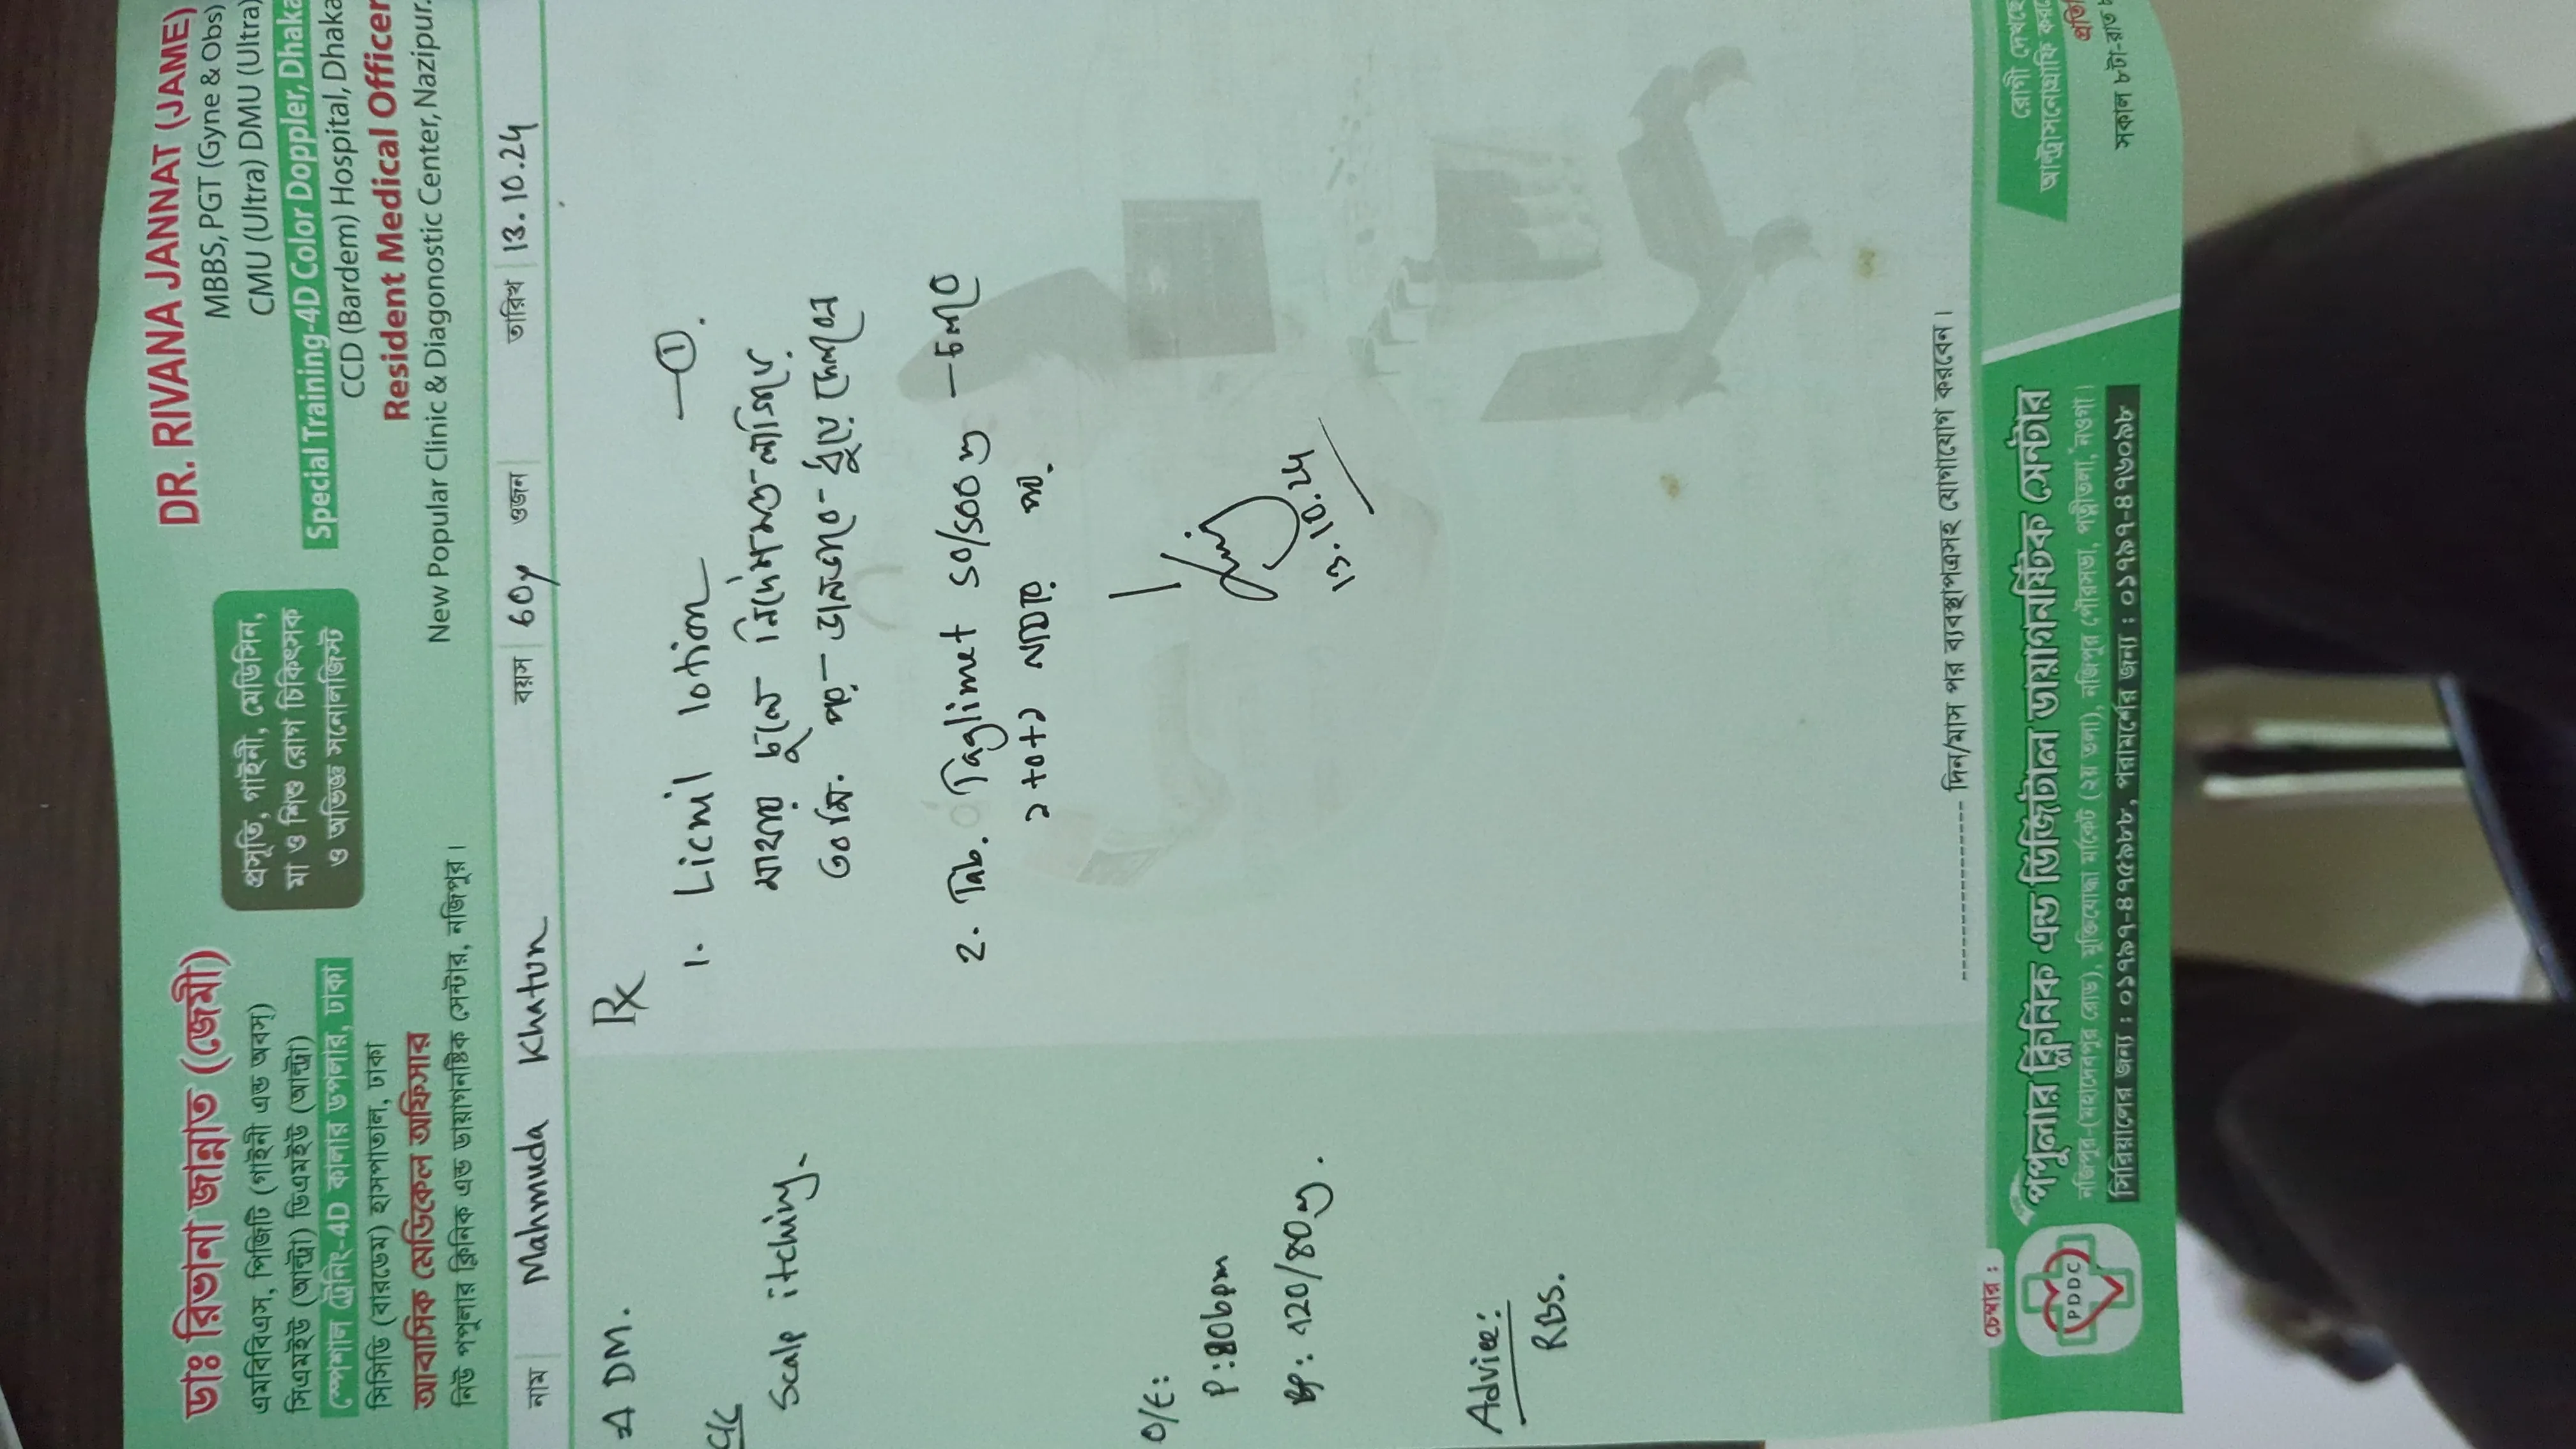 ডাঃ রিভানা জান্নাত (জেমী)
এমবিবিএস, পিজিটি (গাইনী এন্ড অবস)
সিএমইউ (আল্ট্রা) ডিএমইউ (আল্ট্রা)
স্পেশাল ট্রেনিং-4D কালার ডপলার, ঢাকা
সিসিডি (বারডেম) হাসপাতাল, ঢাকা
আবাসিক মেডিকেল অফিসার
নিউ পপুলার ক্লিনিক এন্ড ডায়াগনষ্টিক সেন্টার, নজিপুর।
প্রসূতি, গাইনী, মেডিসিন,
মা ও শিশু রোগ চিকিৎসক
ও অভিজ্ঞ সনোলজিস্ট
DR. RIVANA JANNAT (JAME)
MBBS, PGT (Gyne & Obs)
CMU (Ultra) DMU (Ultra)
Special Training-4D Color Doppler, Dhaka
CCD (Bardem) Hospital, Dhaka
Resident Medical Officer
New Popular Clinic & Diagonostic Center, Nazipur.
নাম Mahmuda Khatun বয়স 60y ওজন তারিখ 13.10.24
DM.
C/C
Scalp itching.
O/E:
P:80bpm
BP: 120/80
Advice:
RBS.
Rx
1. Licnil lotion —①.
মাথায় চুলে নির্দেশমত লাগিয়ে
৩০ মি. পর ভালভাবে ধুয়ে ফেলবেন
2. Tab. Taglimet 50/500 — চলবে
১+০+১ খাওয়ার পর.
13.10.24
দিন/মাস পর ব্যবস্থাপত্রসহ যোগাযোগ করবেন।
চেম্বার :
PDDC
পপুলার ক্লিনিক এন্ড ডিজিটাল ডায়াগনষ্টিক সেন্টার
নজিপুর-(মহাদেবপুর রোড), মুক্তিযোদ্ধা মার্কেট (২য় তলা), নজিপুর পৌরসভা, পত্নীতলা, নওগাঁ।
সিরিয়ালের জন্য : ০১৭৯৭-৪৭৫৯৮৮, পরামর্শের জন্য : ০১৭৯৭-৪৭৬০৯৮
রোগী দেখছে
আল্ট্রাসনোগ্রাফি করছে
প্রতি
সকাল ৮টা-রাত ৮